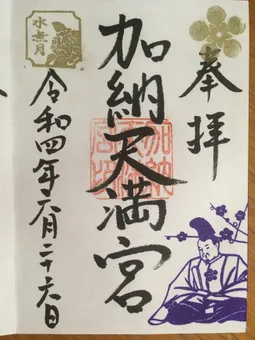 奉拝
加納天満宮
水無月
令和四年六月二十六日